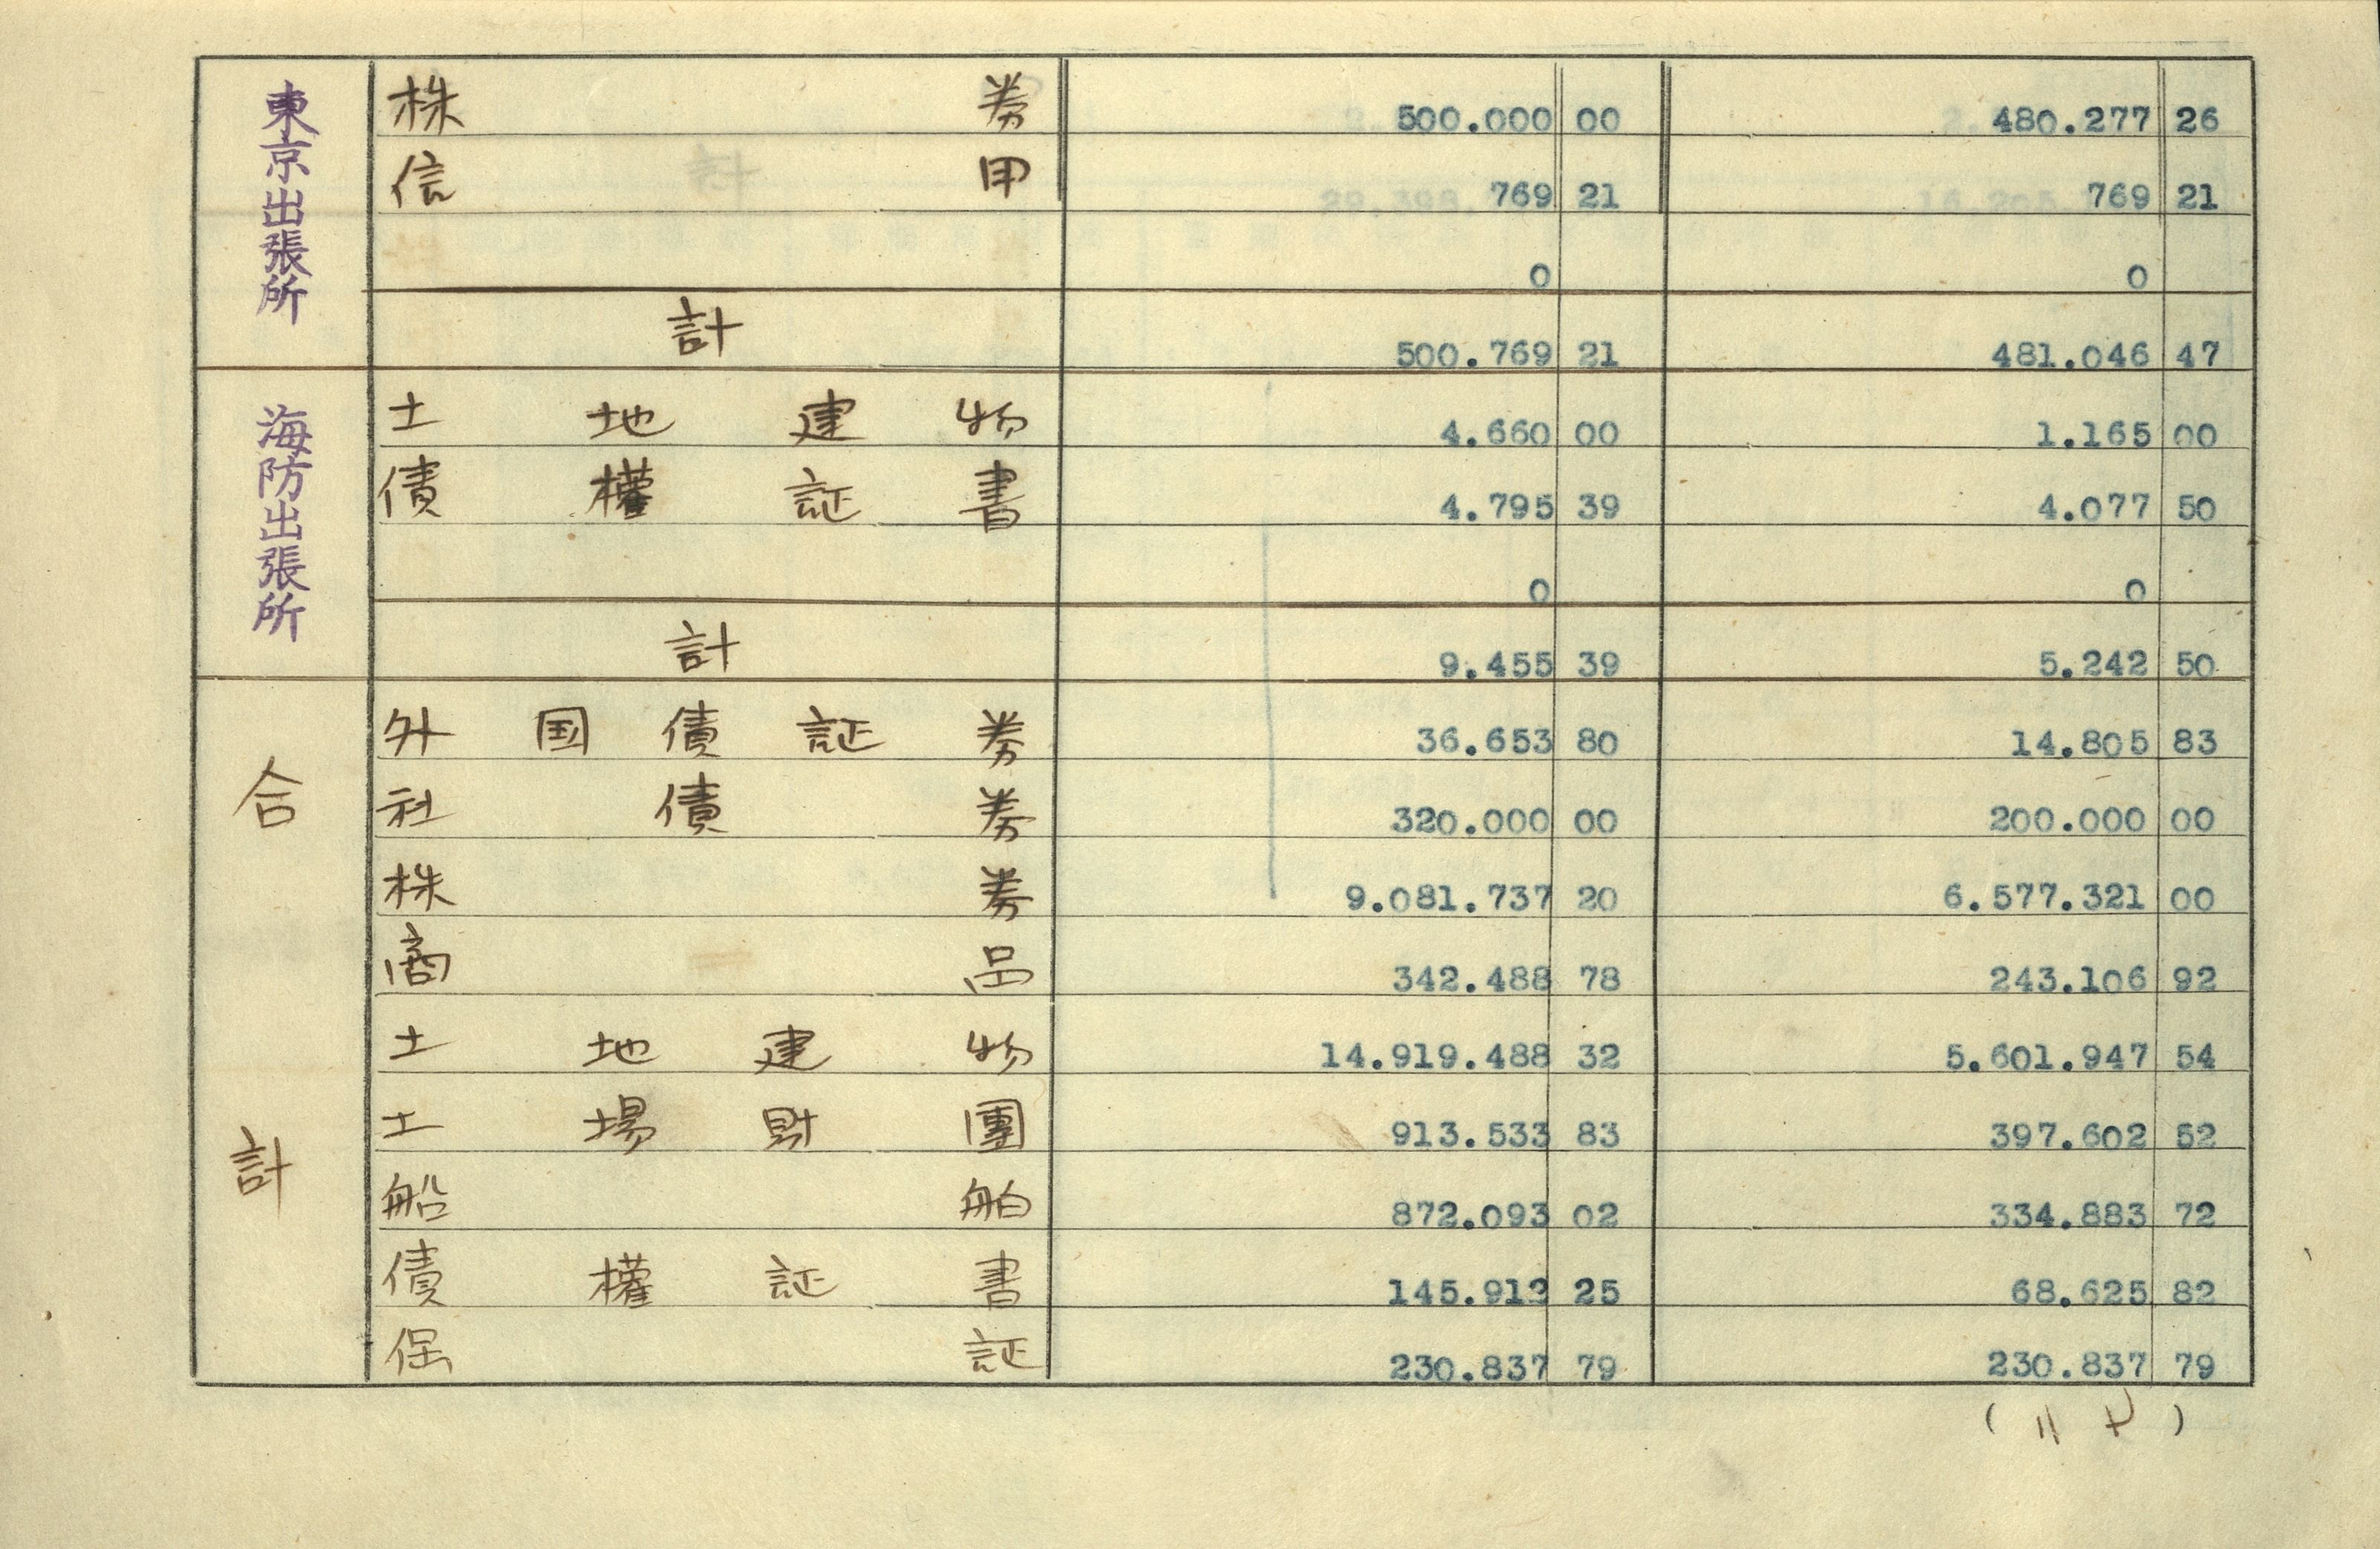 東京出張所 株券 500.000 00 480.277 26
信甲 769 21 769 21
0 0
計 500.769 21 481.046 47
海防出張所 土地建物 4.660 00 1.165 00
債權証書 4.795 39 4.077 50
0 0
計 9.455 39 5.242 50
合計 外国債証券 36.653 80 14.805 83
社債券 320.000 00 200.000 00
株券 9.081.737 20 6.577.321 00
商品 342.488 78 243.106 92
土地建物 14.919.488 32 5.601.947 54
土場財團 913.533 83 397.602 52
船舶 872.093 02 334.883 72
債權証書 145.913 25 68.625 82
保証 230.837 79 230.837 79